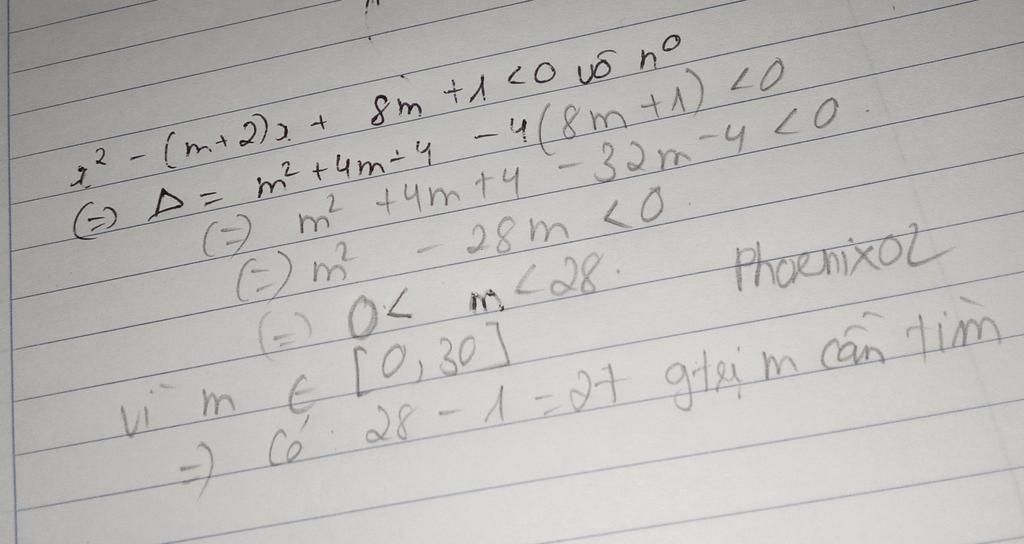 x² - (m+2)x + 8m +1 <0 vô n⁰
(=) Δ = m² +4m+4 -4(8m+1) <0
(=) m² +4m+4 - 32m -4 <0.
(=) m² - 28m <0
(=) 0< m <28.
Phoenix02
vì m ∈ [0,30]
=) Có 28 - 1 = 27 gtrị m cần tìm